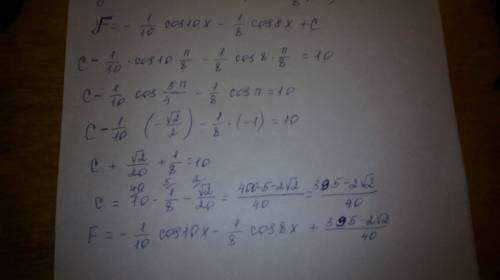 F = - 1/10 cos10x - 1/8 cos8x + C
C - 1/10 · cos10 · π/8 - 1/8 cos 8 · π/8 = 10
C - 1/10 cos 5π/4 - 1/8 cosπ = 10
C - 1/10 (-√2/2) - 1/8 · (-1) = 10
C + √2/20 + 1/8 = 10
40 5 2
C = 10 - 1/8 - √2/20 = (400-5-2√2)/40 = (395-2√2)/40
F = - 1/10 cos10x - 1/8 cos8x + (395-2√2)/40